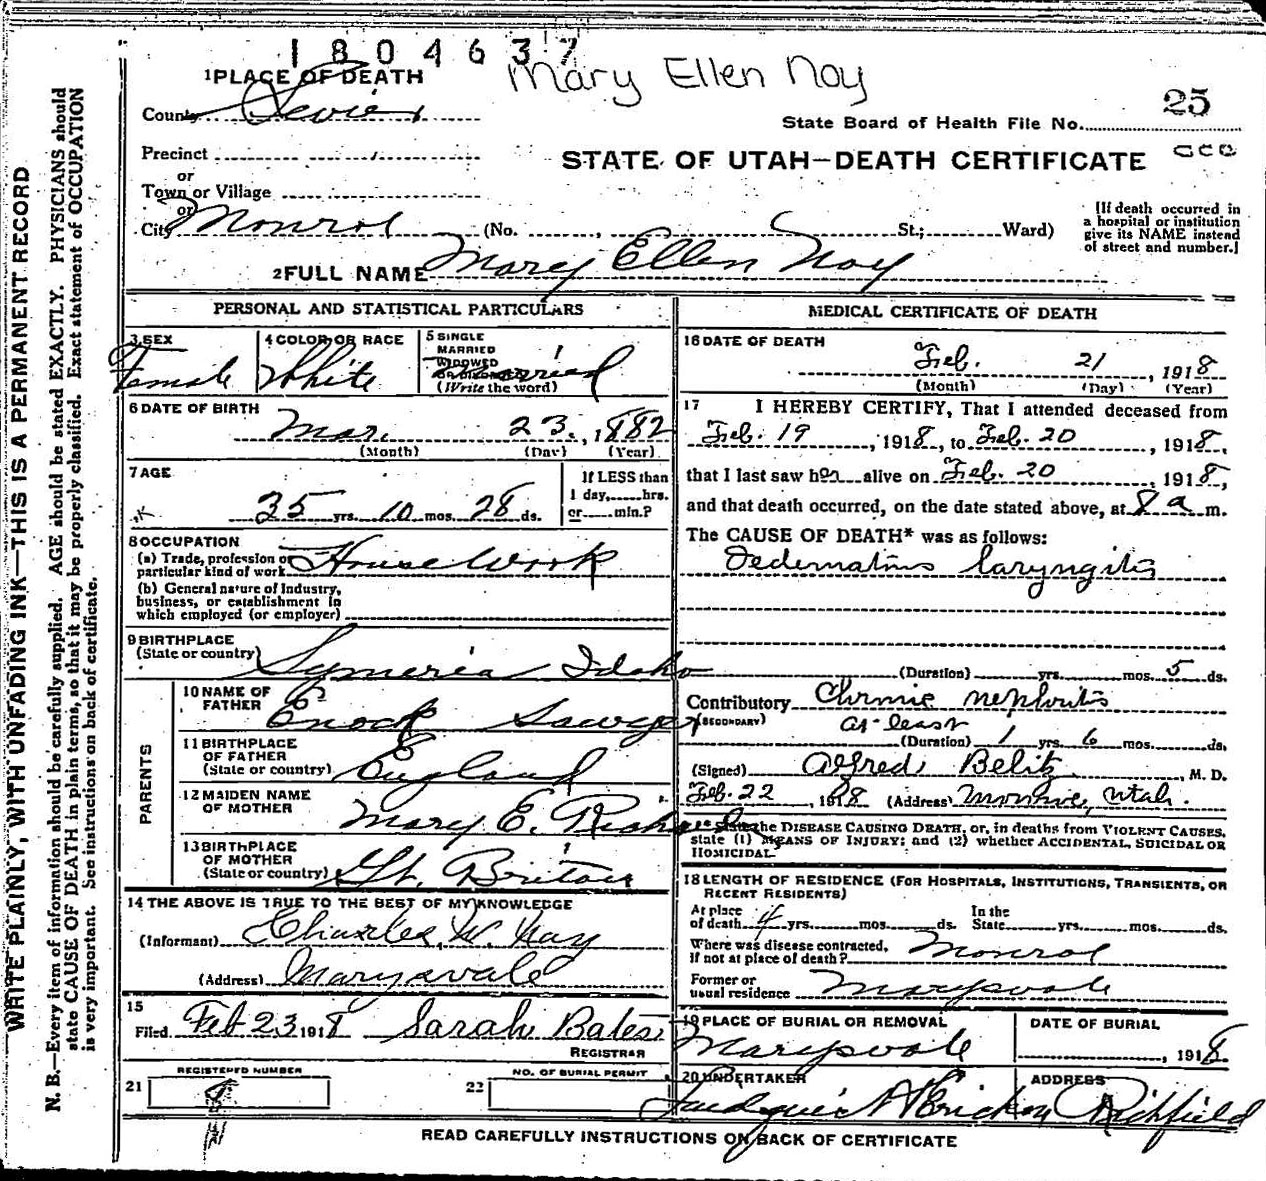 1804637
Mary Ellen Noy
1 PLACE OF DEATH
County Sevier
25
State Board of Health File No.
Precinct
or
Town or Village
STATE OF UTAH—DEATH CERTIFICATE
or
City Monroe (No. , St.; Ward)
[If death occurred in
a hospital or institution
give its NAME instead
of street and number.]
2 FULL NAME Mary Ellen Noy
PERSONAL AND STATISTICAL PARTICULARS
3 SEX
Female
4 COLOR OR RACE
White
5 SINGLE
MARRIED
WIDOWED
OR DIVORCED
(Write the word)
Married
6 DATE OF BIRTH
Mar. 23, 1882
(Month) (Day) (Year)
7 AGE
35 yrs. 10 mos. 28 ds.
If LESS than
1 day, hrs.
or min.?
8 OCCUPATION
(a) Trade, profession or
particular kind of work House Work
(b) General nature of Industry,
business, or establishment in
which employed (or employer)
9 BIRTHPLACE
(State or country) Idaho
PARENTS
10 NAME OF
FATHER Enock Sawyer
11 BIRTHPLACE
OF FATHER
(State or country) England
12 MAIDEN NAME
OF MOTHER Mary E.
13 BIRTHPLACE
OF MOTHER
(State or country) Gt. Britain
14 THE ABOVE IS TRUE TO THE BEST OF MY KNOWLEDGE
(Informant) Charles W. Noy
(Address) Marysvale
15
Filed Feb 23 1918 Sarah Bates
REGISTRAR
REGISTERED NUMBER
21
NO. OF BURIAL PERMIT
22
MEDICAL CERTIFICATE OF DEATH
16 DATE OF DEATH
Feb. 21, 1918
(Month) (Day) (Year)
17 I HEREBY CERTIFY, That I attended deceased from
Feb. 19, 1918, to Feb. 20, 1918,
that I last saw her alive on Feb. 20, 1918,
and that death occurred, on the date stated above, at 8 a m.
The CAUSE OF DEATH* was as follows:
Oedematous laryngitis
(Duration) yrs. mos. 5 ds.
Contributory Chronic nephritis
(SECONDARY) at least
(Duration) 1 yrs. 6 mos. ds.
(Signed) Alfred Belitz, M. D.
Feb. 22, 1918 (Address) Monroe, Utah.
the DISEASE CAUSING DEATH, or, in deaths from VIOLENT CAUSES,
state (1) MEANS OF INJURY; and (2) whether ACCIDENTAL, SUICIDAL OR
HOMICIDAL.
18 LENGTH OF RESIDENCE (FOR HOSPITALS, INSTITUTIONS, TRANSIENTS, OR
RECENT RESIDENTS)
At place
of death 4 yrs. mos. ds.
In the
State yrs. mos. ds.
Where was disease contracted,
if not at place of death? Monroe
Former or
usual residence Marysvale
19 PLACE OF BURIAL OR REMOVAL
Marysvale
DATE OF BURIAL
, 1918
20 UNDERTAKER
ADDRESS
Richfield
READ CAREFULLY INSTRUCTIONS ON BACK OF CERTIFICATE
WRITE PLAINLY, WITH UNFADING INK—THIS IS A PERMANENT RECORD
N. B.—Every item of information should be carefully supplied. AGE should be stated EXACTLY. PHYSICIANS should
state CAUSE OF DEATH in plain terms, so that it may be properly classified. Exact statement of OCCUPATION
is very important. See instructions on back of certificate.